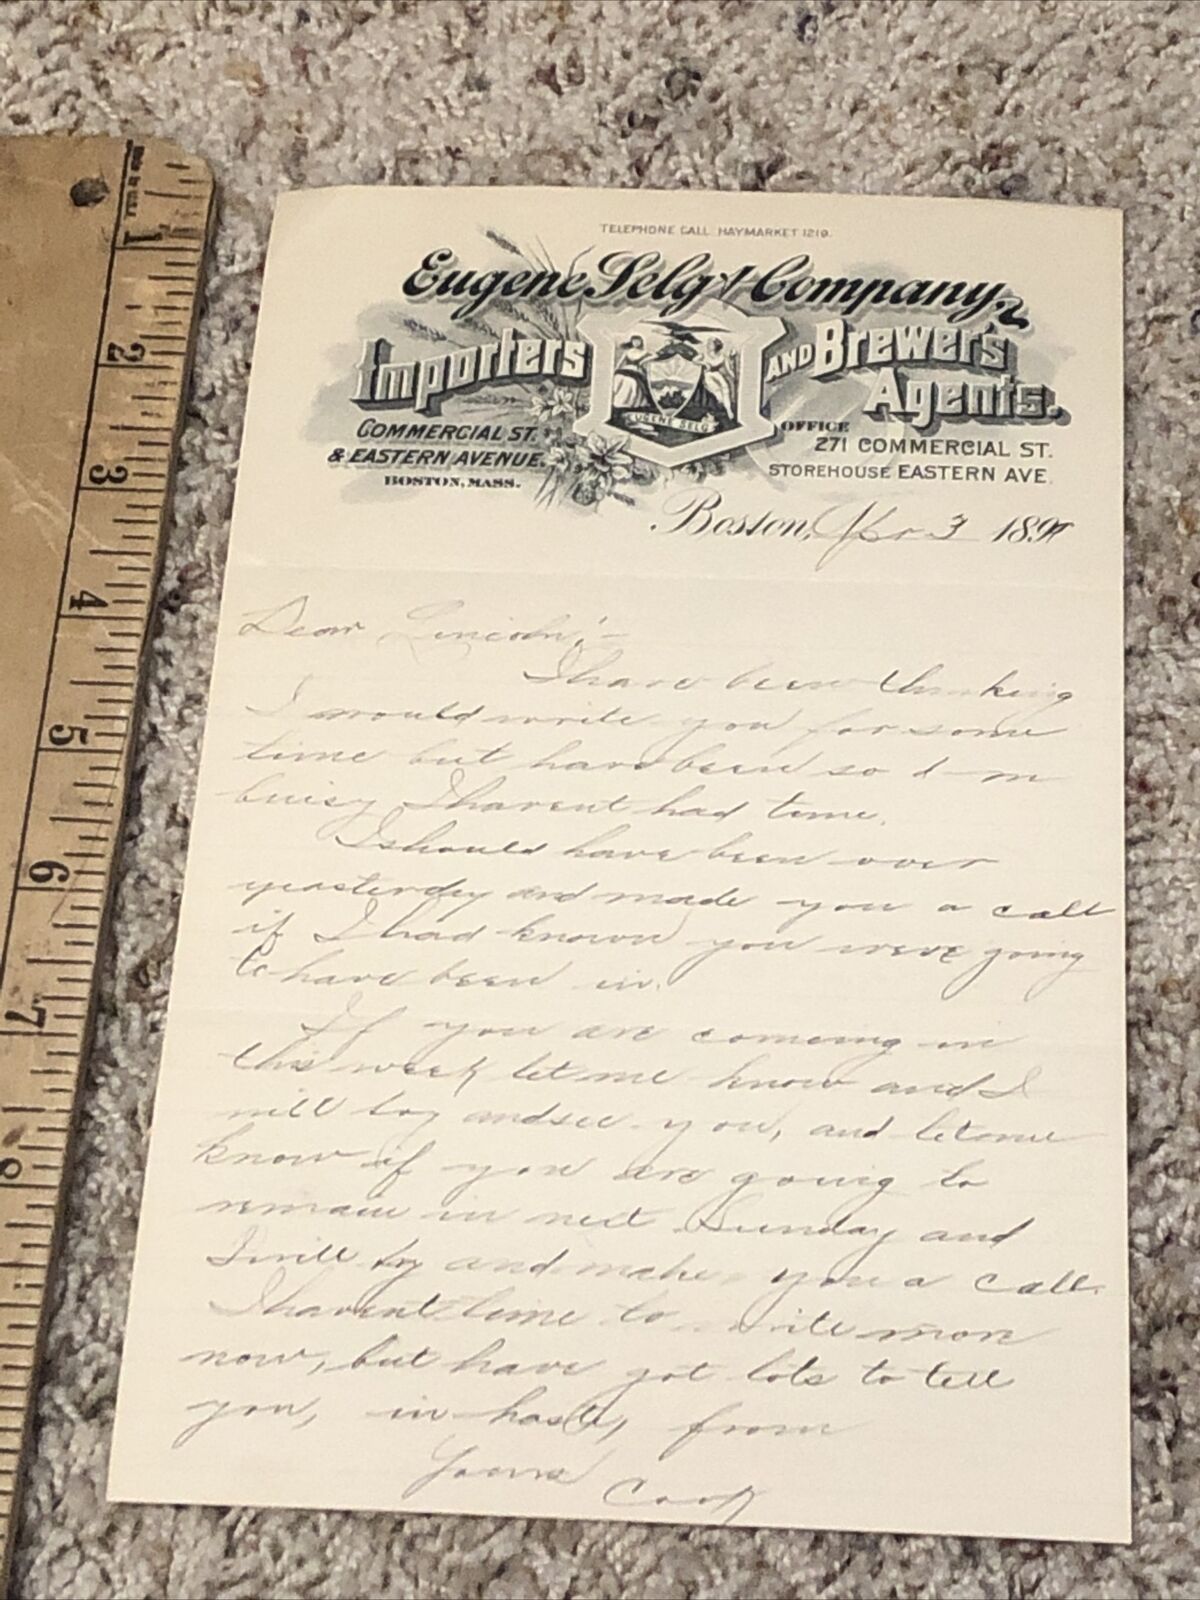 TELEPHONE CALL HAYMARKET 1219.
Eugene Selg & Company,
Importers AND Brewer's Agents.
EUGENE SELG
COMMERCIAL ST.
& EASTERN AVENUE.
BOSTON, MASS.
OFFICE
271 COMMERCIAL ST.
STOREHOUSE EASTERN AVE.
Boston, Apr 3 189
Dear Lincoln:-
I have been thinking
I would write you for some
time but have been so d—m
buisy I havent had time.
I should have been over
yeasterday and made you a call
if I had known you were going
to have been in.
If you are comeing in
this week let me know and I
will try and see you, and let me
know if you are going to
remain in next Sunday and
I will try and make you a call.
I havent time to write more
now, but have got lots to tell
you, in haste, from
Yours Cook
1
2
3
4
5
6
7
8